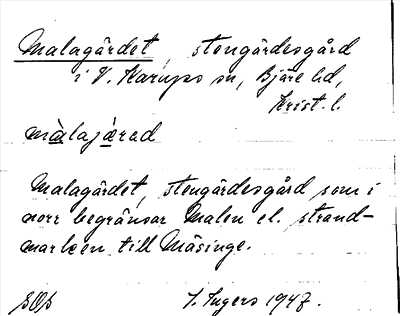 Malagärdet, stengärdesgård
i V. Karups sn, Bjäre hd,
Krist. l.
màlajǽrad
Malagärdet, stengärdesgård som i
norr begränsar Malen el. strand-
marken till Mäsinge.
I. Ingers 1947.